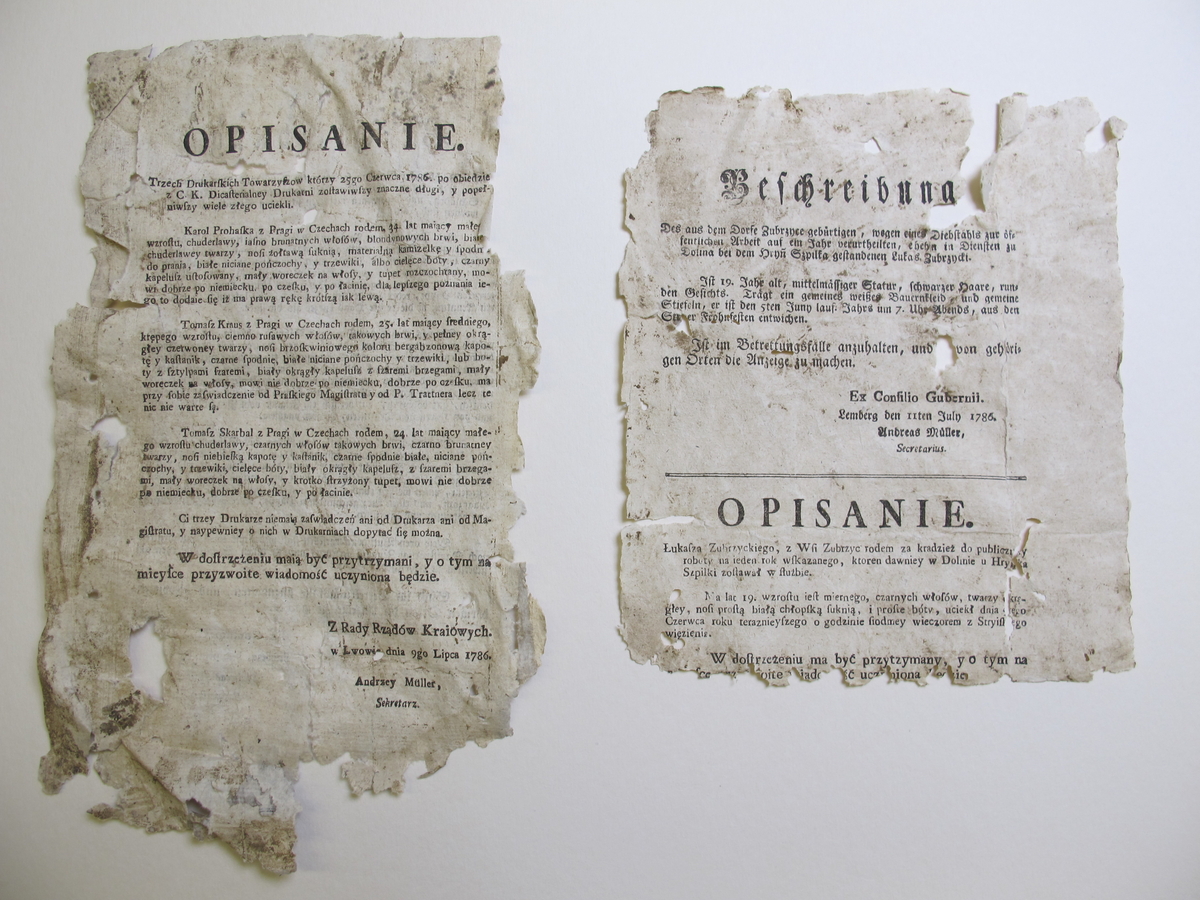 OPISANIE.
Trzech Drukarſkich Towarzyſzow którzy 25go Czerwca 1786. po obiedzie
z C K. Dicaſterialney Drukarni zoſtawiwſzy znaczne długi, y popeł-
niwſzy wiele złego uciekli.
Karol Prohaſka z Pragi w Czechach rodem, 34. lat maiący małe
wzroſtu, chuderlawy, iaſno brunatnych włoſów, blondynowych brwi,
chuderlawey twarzy, noſi żołtawą ſuknią, materialną kamizelkę y ſpodn
do prania, białe niciane pończochy, y trzewiki, albo cielęce bóty, czarny
kapeluſz uſtofowany, mały woreczek na włoſy, y tupet rozczochrany, mo-
wi dobrze po niemiecku, po czeſku, y po łacinie, dla lepſzego poznania ie-
go, to dodaie ſię iż ma prawą rękę krótſzą iak lewą.
Tomaſz Kraus z Pragi w Czechach rodem, 25. lat maiący ſredniego,
krępego wzroſtu, ciemno ruſawych włoſów, takowych brwi, y pełney okrą-
głey czerwoney twarzy, noſi brzoſkwiniowego koloru bergabzonową kapo-
tę y kaftanik, czarne ſpodnie, białe niciane pończochy y trzewiki, lub bu-
ty z ſztylpami ſzaremi, biały okrągły kapeluſz z ſzaremi brzegami, mały
woreczek na włoſy, mowi nie dobrze po niemiecku, dobrze po czeſku, ma
przy ſobie zaświadczenie od Praſkiego Magiſtratu y od P. Trattnera lecz te
nic nie warte ſą.
Tomaſz Skarbal z Pragi w Czechach rodem, 24. lat maiący małe-
go wzroſtu chuderlawy, czarnych włoſów takowych brwi, czarno brunatney
twarzy, noſi niebieſką kapotę y kaftanik, czarne ſpodnie białe, niciane poń-
czochy, y trzewiki, cielęce bóty, biały okrągły kapeluſz, z ſzaremi brzega-
mi, mały woreczek na włoſy, y krotko ſtrzyżony tupet, mowi nie dobrze
po niemiecku, dobrze po czeſku, y po łacinie.
Ci trzey Drukarze niemaią zaświadczeń ani od Drukarza ani od Ma-
giſtratu, y naypewniey o nich w Drukarniach dopytać ſię można.
W doſtrzeżeniu maią być przytrzymani, y o tym na
mieyſce przyzwoite wiadomość uczyniona będzie.
Z Rady Rządów Kraiówych.
w Lwowie dnia 9go Lipca 1786.
Andrzey Müller,
Sekretarz.
Beſchreibung
Des aus dem Dorfe Zubrzyce gebürtigen, wegen eines Diebſtahls zur öf-
fentlichen Arbeit auf ein Jahr verurtheilten, ehehin in Dienſten zu
Dolina bei dem Hryn Szpilka geſtandenen Lukas Zubrzycki.
Iſt 19. Jahr alt, mittelmäſſiger Statur, ſchwarzer Haare, run-
den Geſichts. Trägt ein gemeines weiſſes Bauernkleid, und gemeine
Stiefeln, er iſt den 5ten Juny lauf. Jahrs um 7. Uhr Abends, aus den
Frohnfeſten entwichen.
Iſt im Betrettungsfälle anzuhalten, und von gehöri-
gen Orten die Anzeige zu machen.
Ex Conſilio Gubernii.
Lemberg den 11ten July 1786.
Andreas Müller,
Secretarius.
OPISANIE.
Łukaſza Zubrzyckiego, z Wſi Zubrzyc rodem za kradzież do publiczney
roboty na ieden rok wſkazanego, ktoren dawniey w Dolinie u
Szpilki zoſtawał w ſłużbie.
Ma lat 19. wzroſtu ieſt miernego, czarnych włoſów, twarzy okrą-
głey, noſi proſtą białą chłopſką ſuknią, i proſte bóty, uciekł dnia
Czerwca roku teraznieyſzego o godzinie ſiodmey wieczorem z Stryiſkiego
więzienia.
W doſtrzeżeniu ma być przytzymany, y o tym na
uczyniona